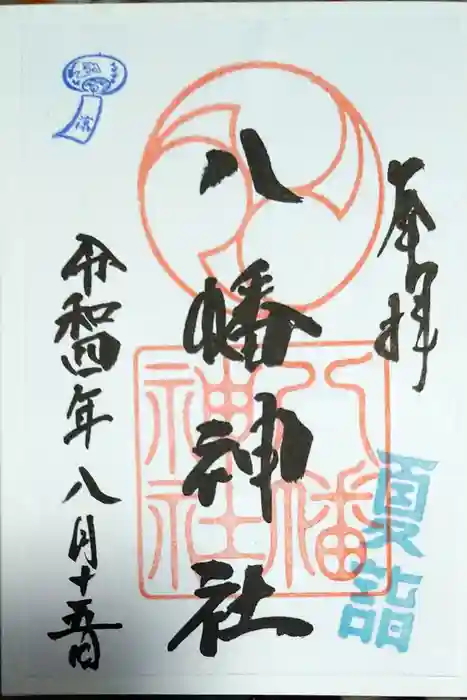 奉拝
夏詣
八幡神社
八幡神社
令和四年八月十五日
涼